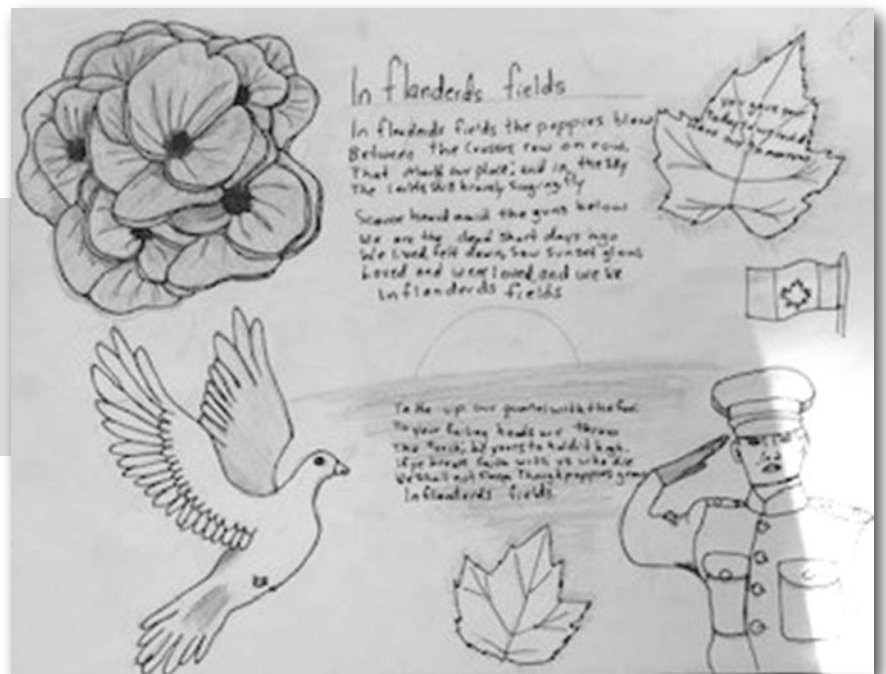 In flanderds fields
In flanderds fields the poppies blow
Between the Crosses row on row,
That mark our place; and in the sky
The larks still bravely singing fly
Scarce heard amid the guns below
We are the dead short days ago
We lived, felt dawn, saw sunset glow
Loved and were loved, and we lie
In flanderds fields
you gave your
today's
Take up our quarrel with the foe
To your failing heads we throw
The Torch; be yours to hold it high.
If ye break faith with us who die
We shall not sleep Though poppies grow
In flanderds fields